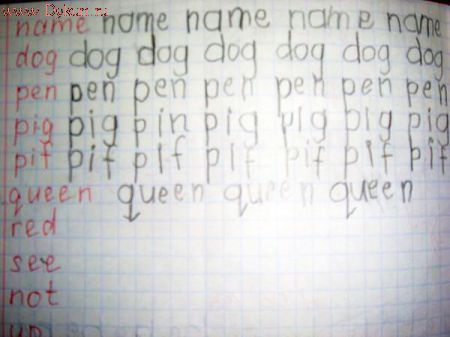 name name name name name
dog dog dog dog dog dog dog
pen pen pen pen pen pen pen
pig pig pin pig pig pig pig
pit pif pif pif pif pif pif
queen queen queen queen
red
see
not
up